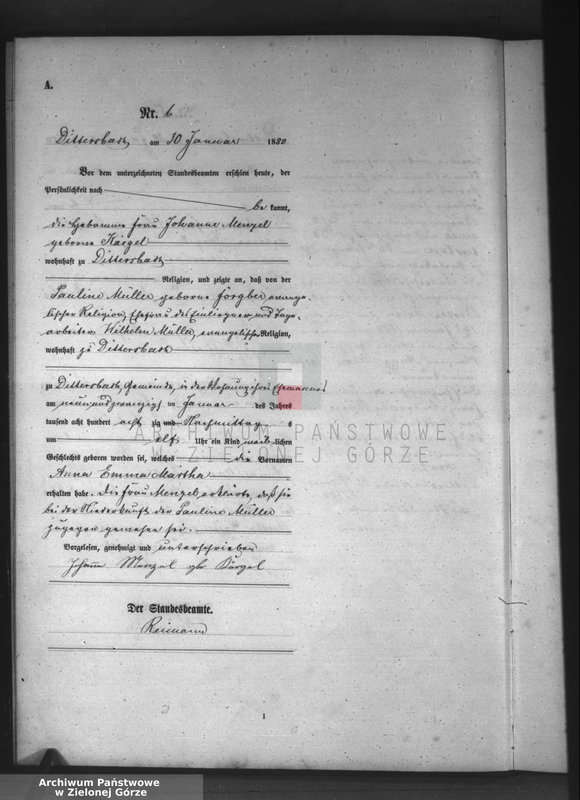 A.
Nr. 6
Dittersbach, am 30 Januar 1880
Vor dem unterzeichneten Standesbeamten erschien heute, der
Persönlichkeit nach
be kannt,
die Hebamme Frau Johanne Menzel
geborne Kärgel
wohnhaft zu Dittersbach
Religion, und zeigte an, daß von der
Pauline Müller geborne Förgber, evange-
lischer Religion, Ehefrau des Einliegner und Tage-
arbeiter Wilhelm Müller, evangelischer Religion,
wohnhaft zu Dittersbach
zu Dittersbach, Gemeinde, in der Wohnung ihres Ehemannes
am neunundzwanzigsten Januar des Jahres
tausend acht hundert acht zig und Nachmittag s
um elf Uhr ein Kind weib lichen
Geschlechts geboren worden sei, welches die Vornamen
Anna Emma Martha
erhalten habe. Die Frau Menzel, erklärte, daß sie
bei der Niederkunft der Pauline Müller
zugegen gewesen sei.
Vorgelesen, genehmigt und unterschrieben
Johann Menzel gb Kärgel
Der Standesbeamte.
Reimann
1
ARCHIWUM PAŃSTWOWE
W ZIELONEJ GÓRZE
Archiwum Państwowe
w Zielonej Górze